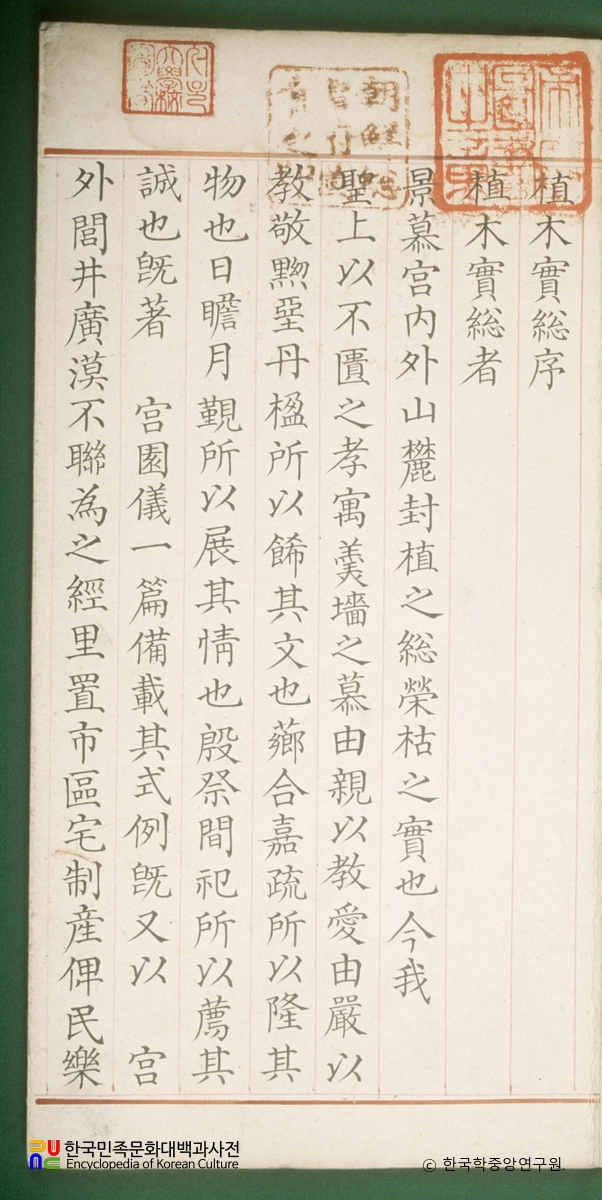 植木實総序
植木實総者
景慕宮内外山麓封植之総榮枯之實也今我
聖上以不匱之孝寓羹墻之慕由親以教愛由嚴以
教敬黝堊丹楹所以餙其文也薌合嘉疏所以隆其
物也日瞻月覲所以展其情也殷祭間祀所以薦其
誠也旣著 宮園儀一篇備載其式例旣又以 宮
外閭井廣漠不聯為之經里置市區宅制産俾民樂
한국민족문화대백과사전
Encyclopedia of Korean Culture
© 한국학중앙연구원.